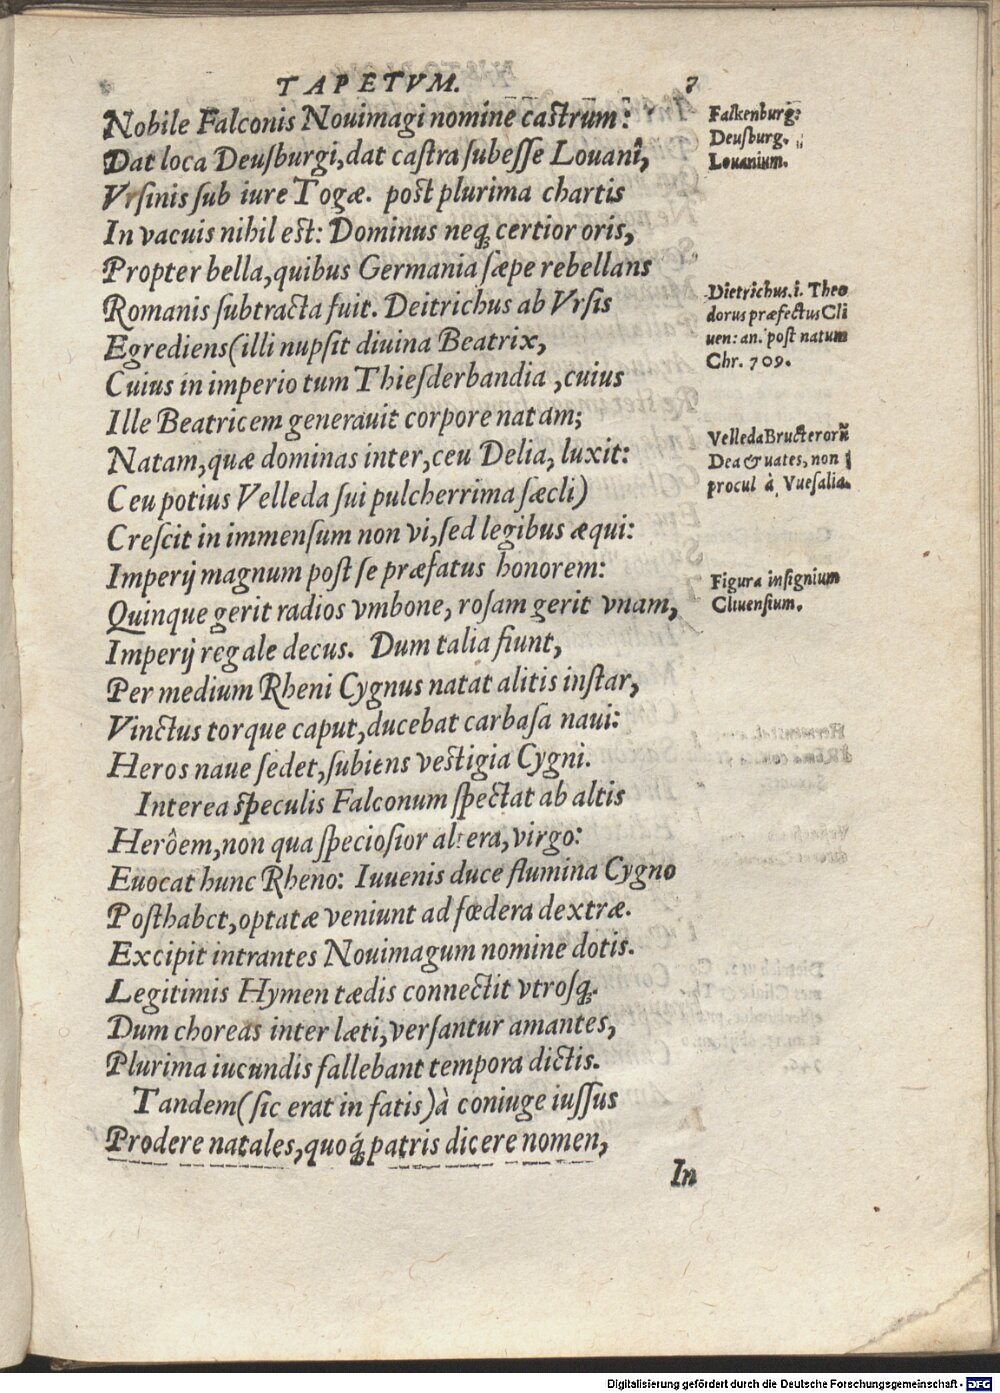 TAPETVM. 7
Nobile Falconis Nouimagi nomine castrum:
Dat loca Deuſburgi, dat caſtra ſubeſſe Louanî,
Vrſinis ſub iure Togæ. post plurima chartis
In vacuis nihil est: Dominus neq́ certior oris,
Propter bella, quibus Germania ſæpe rebellans
Romanis ſubtracta fuit. Deitrichus ab Vrſis
Egrediens (illi nupſit diuina Beatrix,
Cuius in imperio tum Thieſderbandia, cuius
Ille Beatricem generauit corpore natam;
Natam, quæ dominas inter, ceu Delia, luxit:
Ceu potius Velleda ſui pulcherrima ſæcli)
Creſcit in immenſum non vi, ſed legibus æqui:
Imperij magnum poſt ſe præfatus honorem:
Quinque gerit radios vmbone, roſam gerit vnam,
Imperij regale decus. Dum talia fiunt,
Per medium Rheni Cygnus natat alitis inſtar,
Vinctus torque caput, ducebat carbaſa naui:
Heros naue ſedet, ſubiens vestigia Cygni.
Interea ſpeculis Falconum ſpectat ab altis
Herôem, non qua ſpecioſior altera, virgo:
Euocat hunc Rheno: Iuuenis duce flumina Cygno
Poſthabet, optatæ veniunt ad fœdera dextræ.
Excipit intrantes Nouimagum nomine dotis.
Legitimis Hymen tædis connectit vtroſq́.
Dum choreas inter læti, verſantur amantes,
Plurima iucundis fallebant tempora dictis.
Tandem (ſic erat in fatis) à coniuge iuſſus
Prodere natales, quoq́ patris dicere nomen,
In
Falkenburg.
Deuſburg.
Louanium.
Dietrichus. i. Theo
dorus præfectus Cli
uen: an. poſt natum
Chr. 709.
Velleda Bructerorũ
Dea & uates, non
procul à Vueſalia.
Figura inſignium
Cliuenſium.
Digitalisierung gefördert durch die Deutsche Forschungsgemeinschaft - DFG